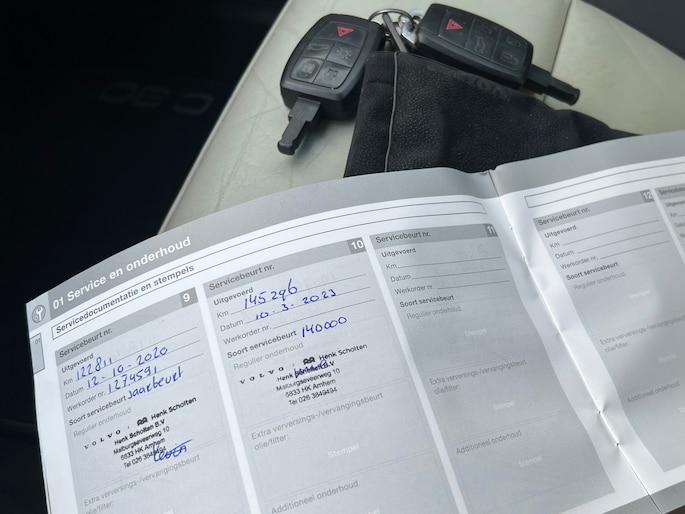 C30
01 Service en onderhoud
Servicedocumentatie en stempels
01
Servicebeurt nr. 9
Uitgevoerd
Km 122811
Datum 12-10-2020
Werkorder nr. 1274591
Soort servicebeurt Jaarbeurt
Regulier onderhoud
VOLVO Henk Scholten
Henk Scholten B.V.
Malburgseveerweg 10
6833 HK Arnhem
Tel 026 3849494
Extra verversings-/vervangingsbeurt
olie/filter:
Servicebeurt nr. 10
Uitgevoerd
Km 145296
Datum 10-3-2023
Werkorder nr.
Soort servicebeurt 140000
Regulier onderhoud
VOLVO Henk Scholten
Henk
Malburgseveerweg 10
6833 HK Arnhem
Tel 026 3849494
Extra verversings-/vervangingsbeurt
olie/filter:
Stempel
Additioneel onderhoud
Servicebeurt nr. 11
Uitgevoerd
Km
Datum
Werkorder nr.
Soort servicebeurt
Regulier onderhoud
Stempel
Extra verversings-/vervangingsbeurt
olie/filter:
Stempel
Additioneel onderhoud
Stempel
Servicebeurt nr. 12
Uitgevoerd
Km
Datum
Werkorder nr.
Soort servicebeurt
Regulier onderhoud
Stempel
Extra verversings-/vervangingsbeurt
olie/filter:
Stempel
Additioneel onderhoud